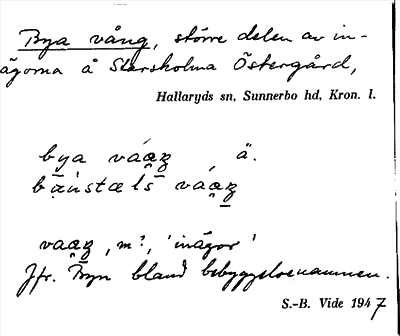 Bya vång, större delen av in-
ägorna å Starsholma Östergård,
Hallaryds sn, Sunnerbo hd, Kron. l.
bya , ä.
, m?, 'inägor'
Jfr. Byn bland bebyggelsenamnen.
S.-B. Vide 1947